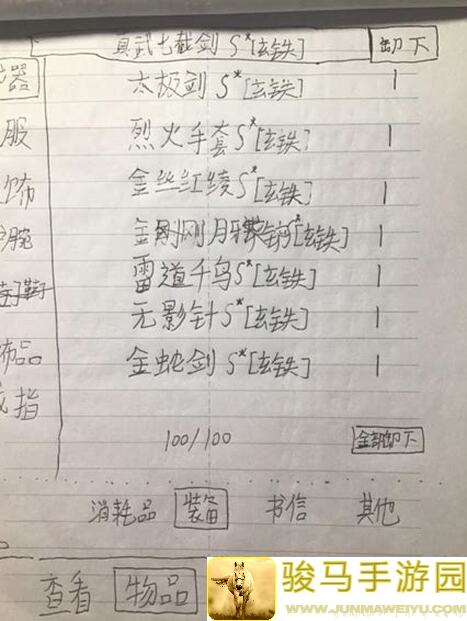 真武七截剑 S*[玄铁] 卸下
器 太极剑 S*[玄铁] 1
服 烈火手套S*[玄铁] 1
饰 金丝红绫S*[玄铁] 1
腕 金刚 月牙 S*[玄铁] 1
雷道千鸟S*[玄铁] 1
饰品 无影针S*[玄铁] 1
戒指 金蛇剑 S*[玄铁] 1
100/100 全部卸下
消耗品 装备 书信 其他
查看 物品
骏马手游园
WWW.JUNMAWEIYU.COM